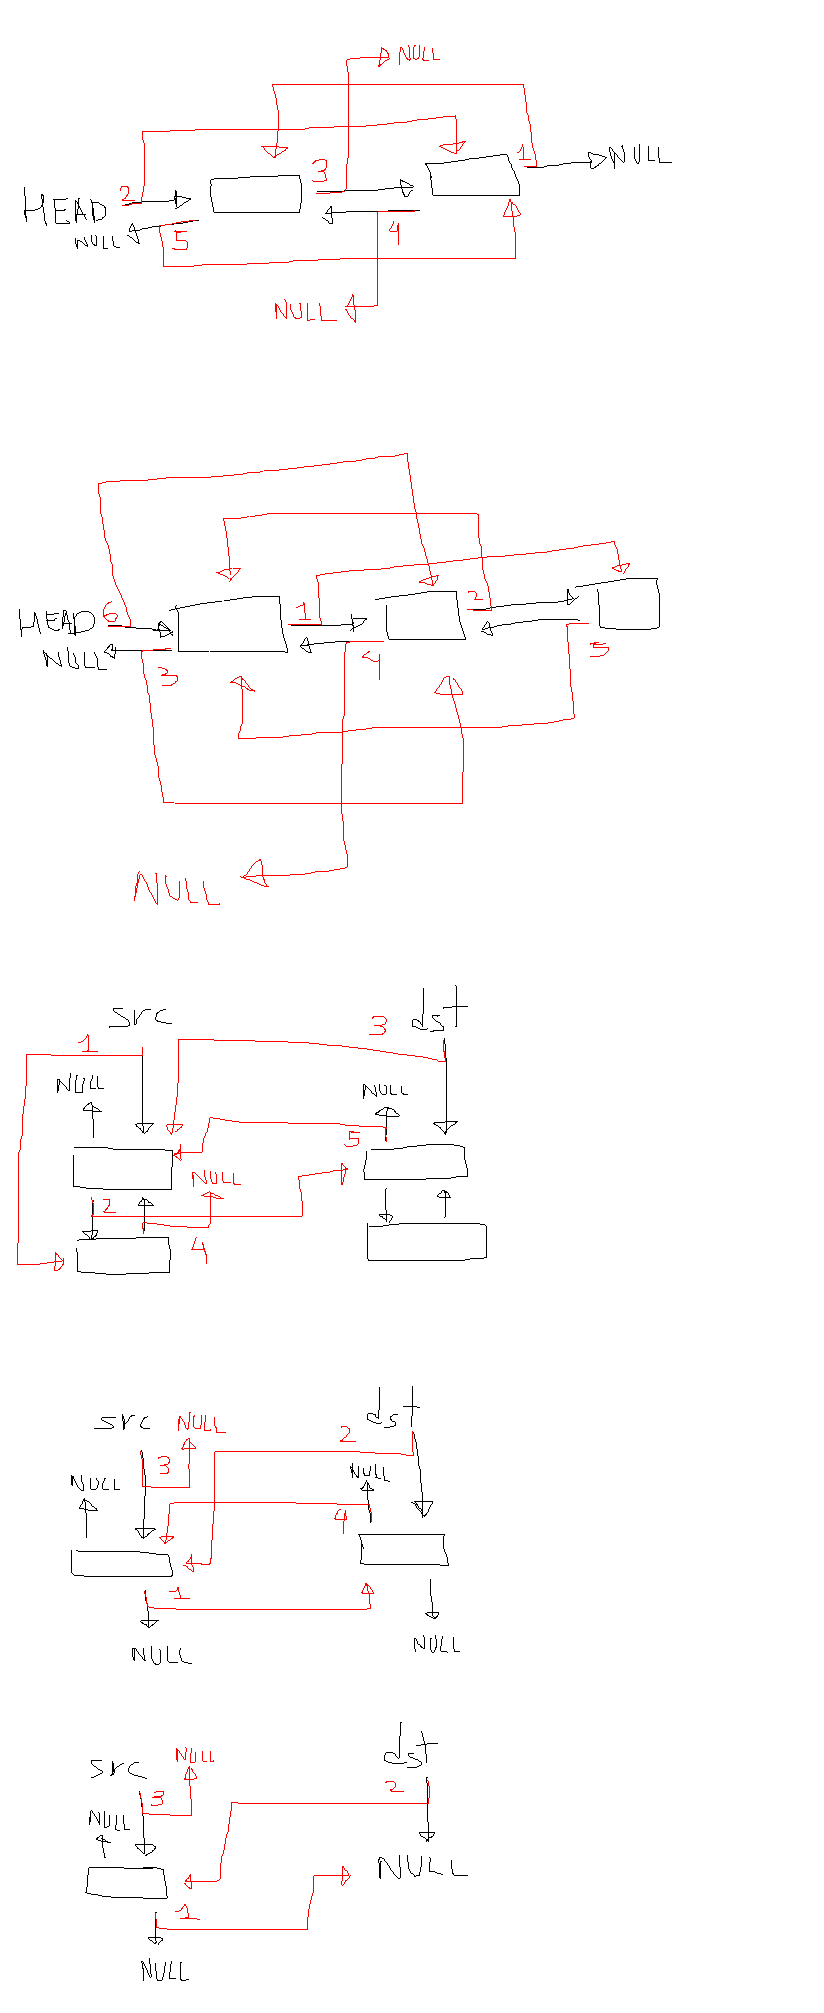 NULL
1
3
NULL
2
HEAD
NULL
5
4
NULL
6
1
2
HEAD
NULL
3
4
5
NULL
src
dst
1
3
NULL
NULL
5
NULL
2
4
src
NULL
dst
2
3
NULL
NULL
4
1
NULL
NULL
src
NULL
dst
3
2
NULL
NULL
1
NULL